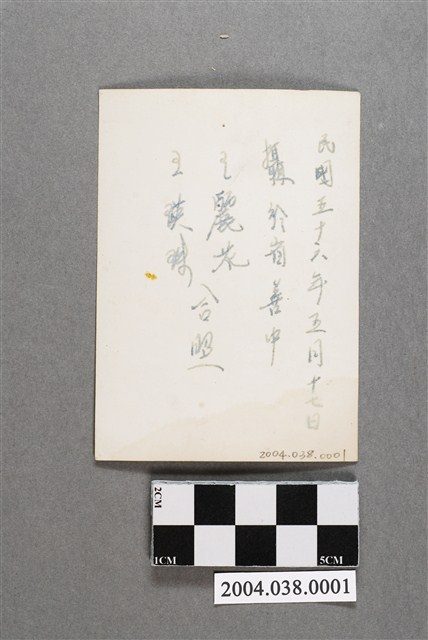 民國五十六年五月十七日
攝於首善中
王麗花
王瑛珠
合照
2004.038.0001
2CM
1CM
5CM
2004.038.0001